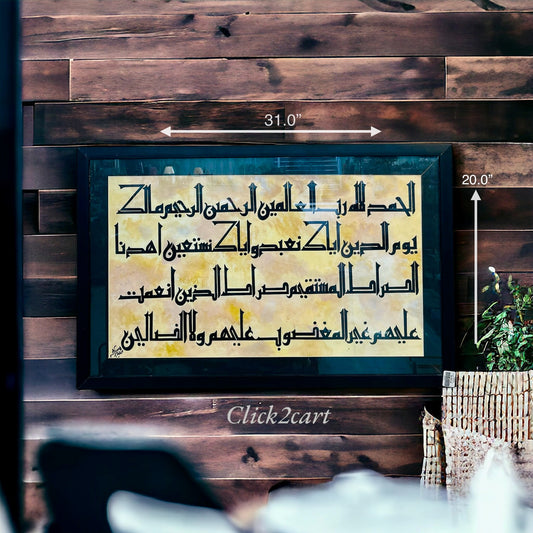 31.0”
20.0”
الحمد لله رب العلمين الرحمن الرحيم ملك
يوم الدين اياك نعبد و اياك نستعين اهدنا
الصراط المستقيم صراط الذين انعمت
عليهم غير المغضوب عليهم ولا الضالين
Click2cart